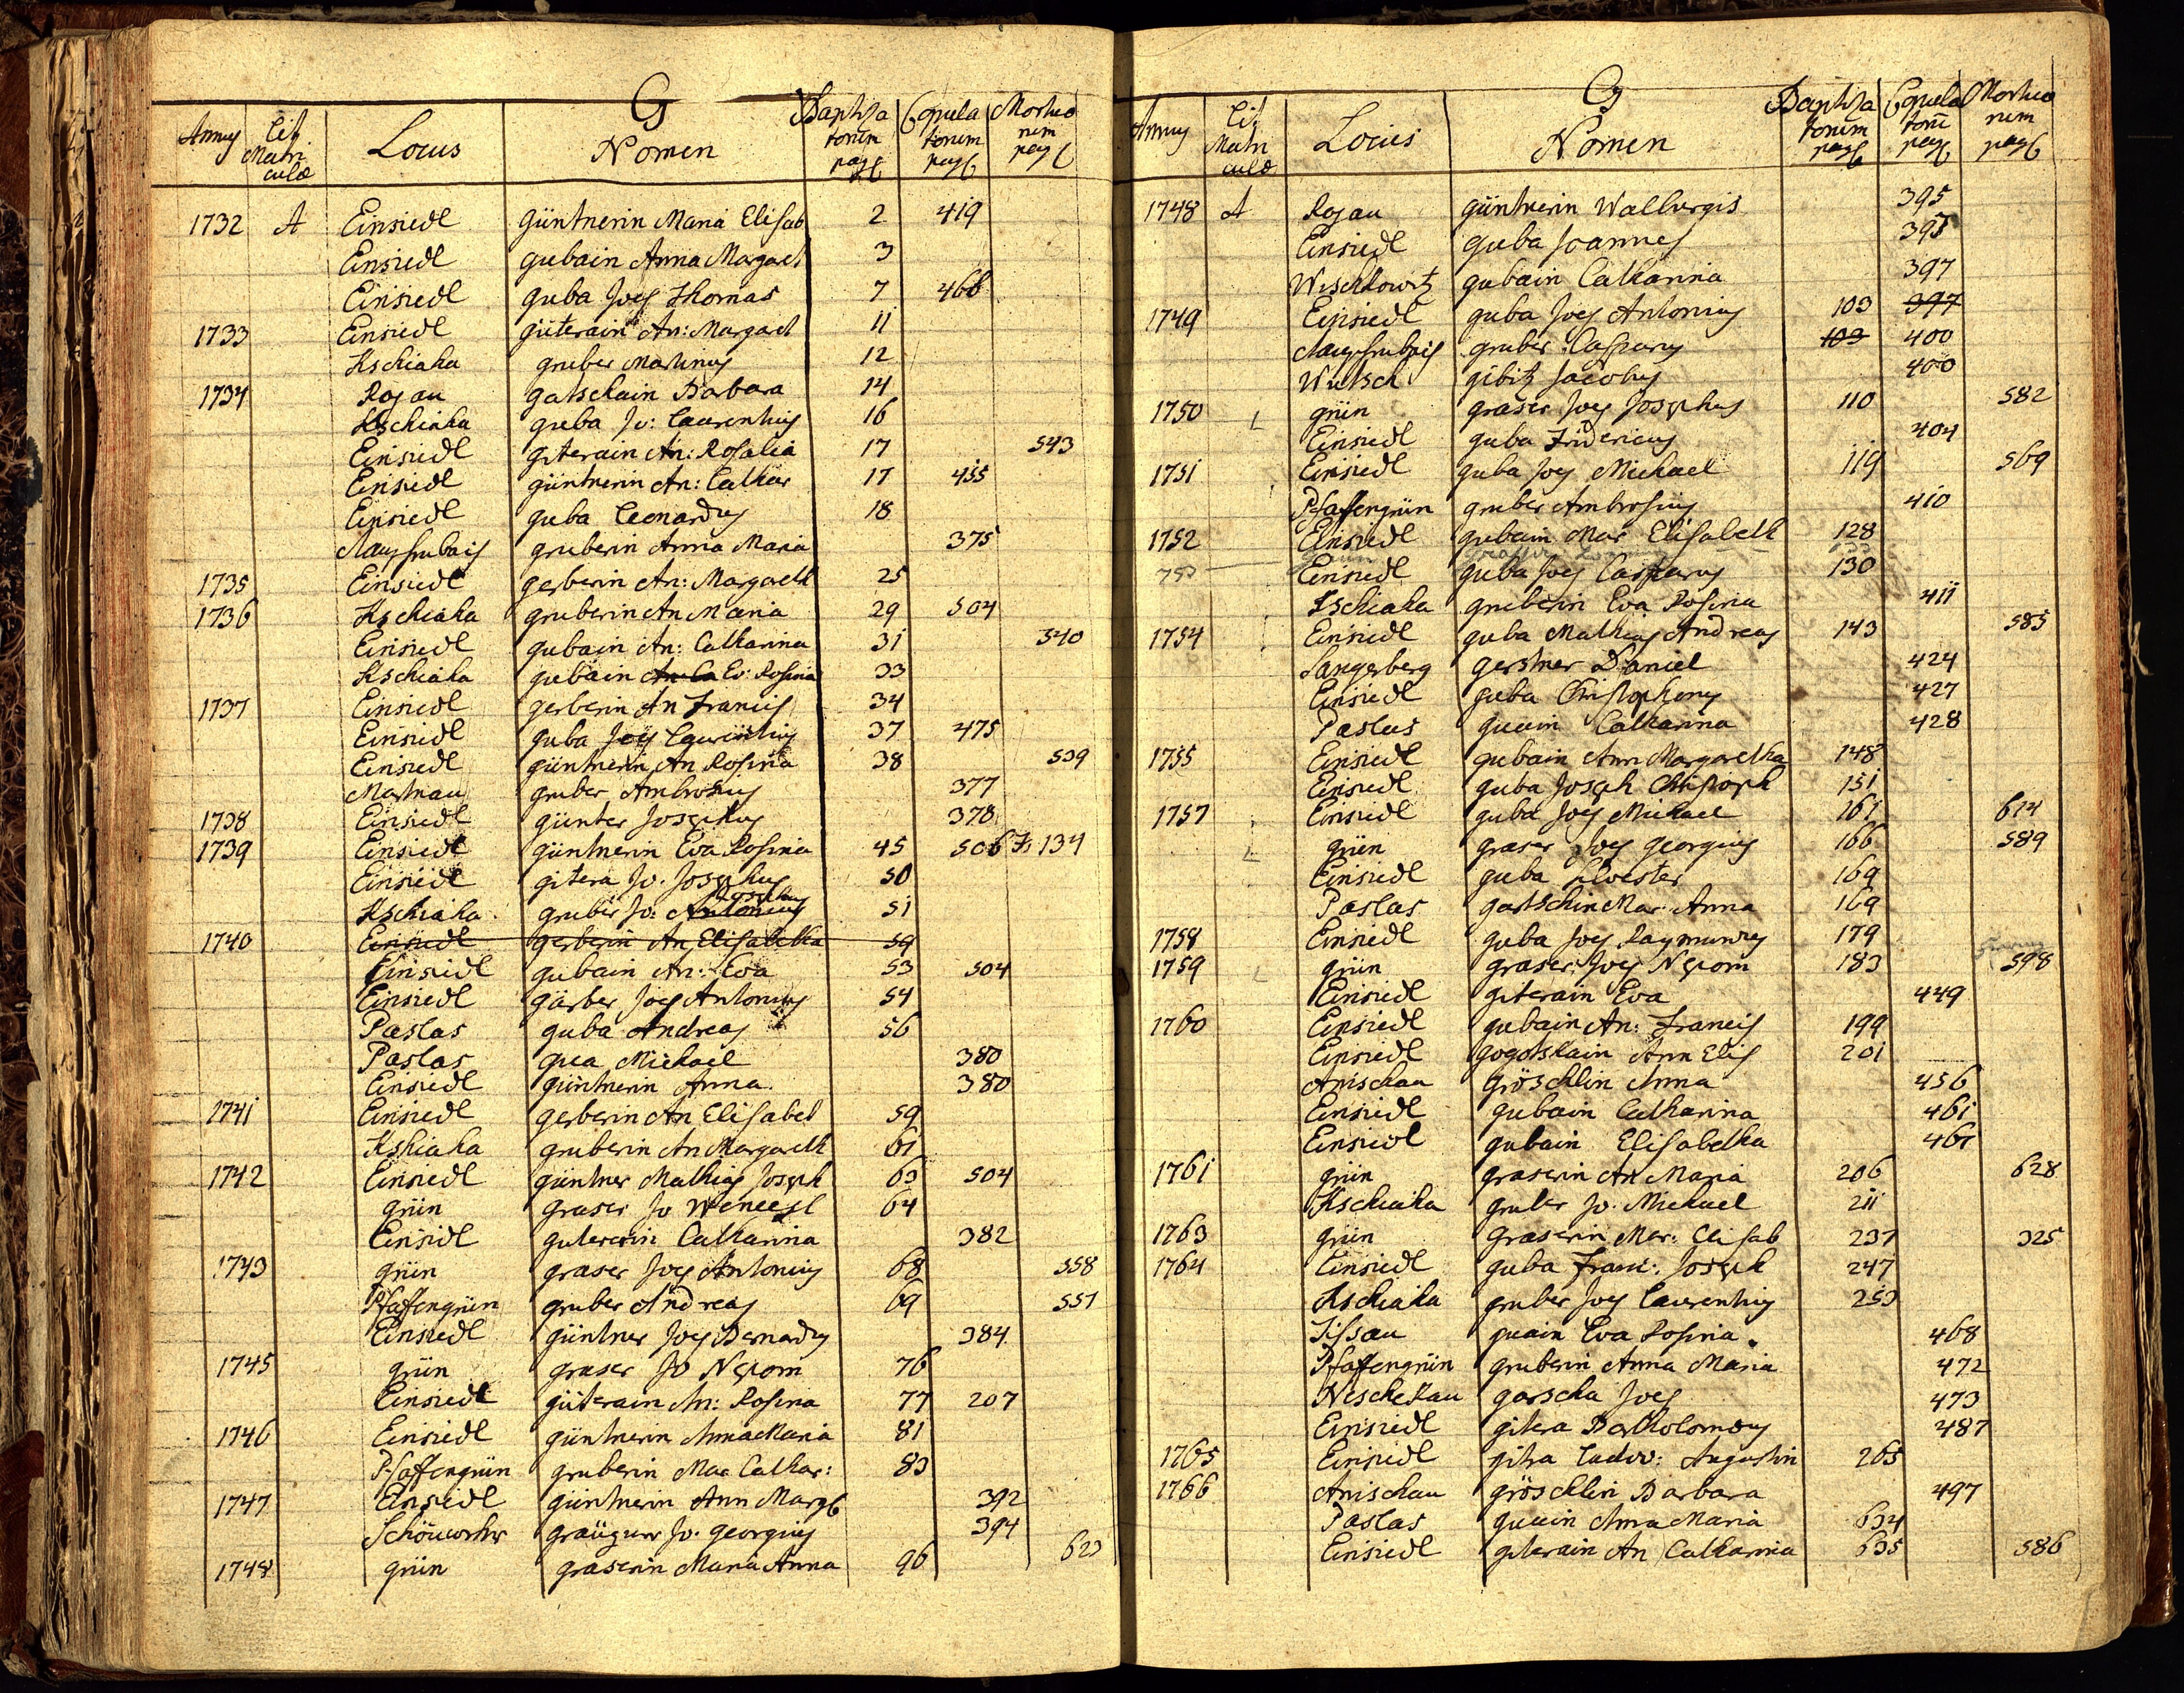 G
Annus Lit. Matri culæ Locus Nomen Baptiza torum pag Copula torum pag Mortuo rum pag
1732 A Einsiedl güntnerin Maria Elisab 2 419
Einsiedl gubain Anna Margaret 3
Einsiedl guba Joes Thomas 7 468
1733 Einsiedl güterain An: Margaret 11
Kschiaha gruber Martinus 12
1734 Rojau gatschain Barbara 14
Kschiaha guba Jo: Laurentius 16
Einsiedl giterain An: Rosalia 17 543
Einsiedl güntnerin An: Cathar 17 455
Einsiedl guba Leonardus 18
gruberin Anna Maria 375
1735 Einsiedl gerberin An: Margareth 25
1736 Kschiaha gruberin An Maria 29 504
Einsiedl gubain An: Catharina 31 540
Kschiaha gubain An Ca Ev: Rosina 33
1737 Einsiedl gerberin An Francis 34
Einsiedl guba Joes Laurentius 37 475
Einsiedl güntnerin An Rosina 38 539
Martnau gruber Ambrosius 377
1738 Einsiedl günter Josephus 378
1739 Einsiedl güntnerin Eva Rosina 45 506 134
Einsiedl gitera Jo. Josephus 50
Kschiaha gruber Jo: Antonius Josephus 51
1740 Einsiedl gerberin An Elisabetha 59
Einsiedl gubain An: Eva 53 504
Einsiedl gärber Joes Antonius 54
Paslas guba Andreas 56
Paslas gua Michael 380
Einsiedl güntnerin Anna 380
1741 Einsiedl gerberin An Elisabet 59
Kshiaha gruberin An Margareth 61
1742 Einsiedl güntner Mathias Joseph 63 504
grün graser Jo Wencesl 64
Einsidl Catharina 382
1743 grün graser Joes Antonius 68 558
Pfaffengrün gruber Andreas 69 557
Einsiedl güntner Joes Bernardus 384
1745 grün graser Jo Nepom 76
Einsiedl güterain An: Rosina 77 207
1746 Einsiedl güntnerin Anna Maria 81
Pfaffengrün gruberin Mar Cathar: 83
1747 Einsiedl güntnerin Ann Marg 392
Jo. georgius 394
1748 grün graserin Maria Anna 96 623
G
Annus Lit. Matri culæ Locus Nomen Baptiza torum pag Copula torum pag Mortuo rum pag
1748 A Rojau güntnerin Walburgis 395
Einsiedl guba Joannes 395
Wischkowitz gubain Catharina 397
1749 Einsiedl guba Joes Antonius 103 397
gruber Casparus 103 400
gibitz Jacobus 400
1750 grün graser Joes Josephus 110 582
Einsiedl guba Fridericus 404
1751 Einsiedl guba Joes Michael 119 569
Pfaffengrün gruber Ambrosius 410
1752 Einsiedl gubain Mar Elisabeth 128
753
Einsiedl guba Joes Casparus 130
Kschiaha gruberin Eva Rosina 411
1754 Einsiedl guba Mathias Andreas 143 585
Sangerberg gerstner Daniel 424
Einsiedl guba Christophorus 427
Paslas guain Catharina 428
1755 Einsiedl gubain Ann Margaretha 148
Einsiedl guba Joseph Christoph 151
1757 Einsiedl guba Joes Michael 161 614
grün graser Joes georgius 166 589
Einsiedl guba silvester 169
Paslas gartschin Mar: Anna 169
1758 Einsiedl guba Joes Raymundus 179
1759 grün graser Joes Nepom 183 598
Einsiedl giterain Eva 449
1760 Einsiedl gubain An: Francis 199
Einsiedl gogotskain Ann Elis 201
Anischau gröschlin Anna 456
Einsiedl gubain Catharina 461
Einsiedl gubain Elisabetha 461
1761 grün graserin An Maria 206 628
Kschiaha gruber Jo. Michael 211
1763 grün graserin Mar: Elisab 237 325
1764 Einsiedl guba Franc: Joseph 247
Kschiaha gruber Joes Laurentius 253
Tissau guain Eva Rosina 468
Pfaffengrün gruberin Anna Maria 472
Neschekau garscha Joes 473
Einsiedl gitera Bartholomæus 487
1765 Einsiedl Ludov: Augustin 265
1766 Anischau gröschlin Barbara 497
Paslas guain Anna Maria 634
Einsiedl giterain An Catharina 635 586